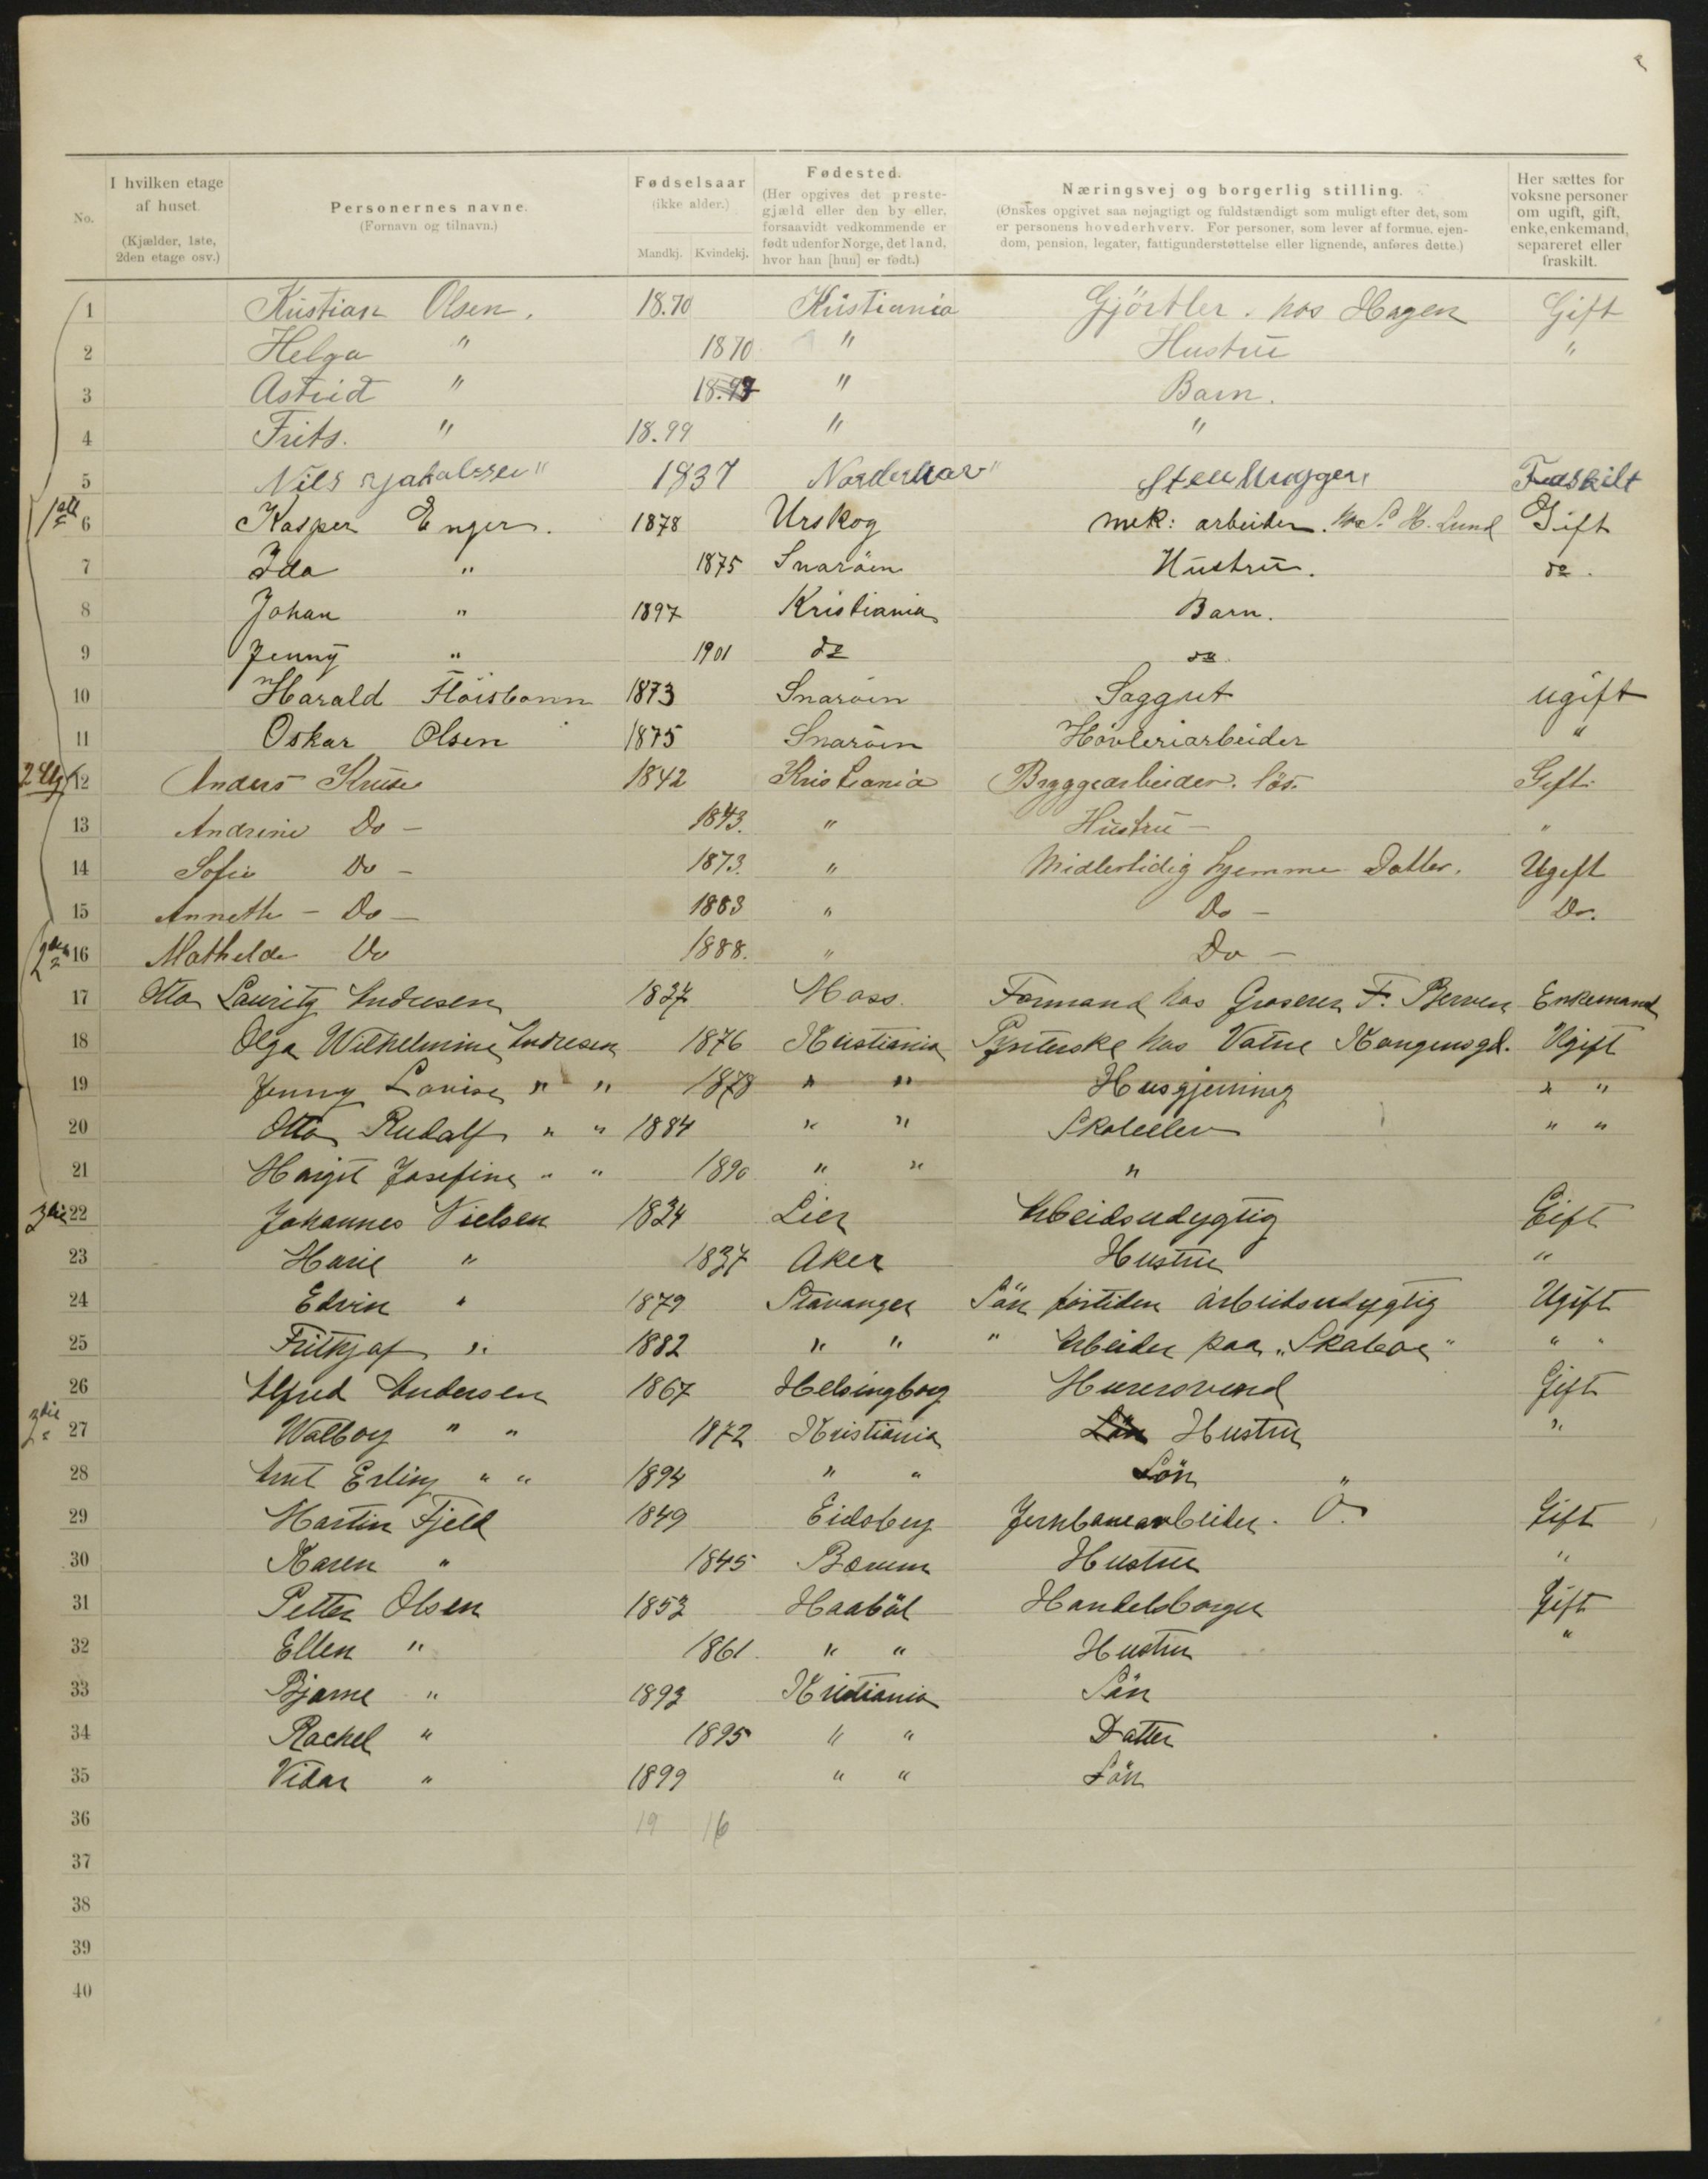 No.
I hvilken etage af huset. (Kjælder, 1ste, 2den etage osv.)
Personernes navne. (Fornavn og tilnavn.)
Fødselsaar (ikke alder.) Mandkj. Kvindekj.
Fødested. (Her opgives det prestegjæld eller den by eller, forsaavidt vedkommende er født udenfor Norge, det land, hvor han [hun] er født.)
Næringsvej og borgerlig stilling. (Ønskes opgivet saa nøjagtigt og fuldstændigt som muligt efter det, som er personens hovederhverv. For personer, som lever af formue, ejendom, pension, legater, fattigunderstøttelse eller lignende, anføres dette.)
Her sættes for voksne personer om ugift, gift, enke, enkemand, separeret eller fraskilt.
1 Kristian Olsen. 18.70 Kristiania Gjörtler. hos Hagen Gift
2 Helga " 1870 " Hustru "
3 Astrid " " Barn.
4 Frits. " 18.99 " "
5 Nils 1837 Stenhugger Fraskilt
6 Kasper Enger. 1878 Urskog mek: arbeider. H. Lund Gift
7 Ida " 1875 Snaröen Hustru. do.
8 Johan " 1897 Kristiania Barn.
9 Jenny " 1901 do do
10 Harald Flöisbonn 1873 Snaröen Saggut ugift
11 Oskar Olsen 1875 Snaröen Hövleriarbeider "
12 Anders Kruse 1842 Kristiania Bryggearbeider. lös. Gift
13 Andrine Do - 1843. " Hustru - "
14 Sofie Do - 1873. " Midlertidig hjemme Datter. Ugift
15 Annethe - Do - 1883 " Do - Do.
16 Mathelde Do 1888. " Do -
17 Otto Lauritz Andresen 1837 Moss. Formand hos Groserer F. Enkemand
18 Olga Wilhelmine Andresen 1876 Kristiania Pynterske hos Vatne Kongensgd. Ugift
19 Jenny Lovise " " 1878 " " Husgjerning " "
20 Otto Rudolf " " 1884 " " Skoleelev " "
21 Margit Josefine " " 1890 " " "
22 Johannes Nielsen 1834 Lier Arbeidsudygtig Gift
23 Marie " 1837 Aker Hustru "
24 Edvin " 1879 Stavanger Sön förtiden arbeidsudygtig Ugift
25 Frithjof " 1882 " " " Arbeider paa "Skaboe" " "
26 Alfred Andersen 1867 Helsingborg Murersvend Gift
27 Walborg " " 1872 Kristiania Hustru "
28 Arnt Erling " " 1894 " " Sön "
29 Martin Fjeld 1849 Eidsberg Jernbanearbeider. Ö. Gift
30 Karen " 1845 Bærum Hustru "
31 Petter Olsen 1853 Haaböl Handelsborger Gift
32 Ellen " 1861. " " Hustru "
33 Bjarne " 1893 Kristiania Sön
34 Rachel " 1895 " " Datter
35 Vidar " 1899 " " Sön
36 19 16
37
38
39
40